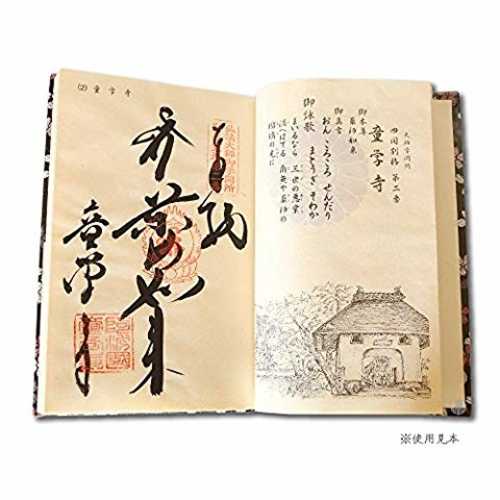 大師学問所
四国別格 第二番
童学寺
御本尊
薬師如来
御真言
おん ころころ せんだり
まとうぎ そわか
御詠歌
(2) 童学寺
奉納
弘法大師御学問所
薬師如来
童学寺
※使用見本